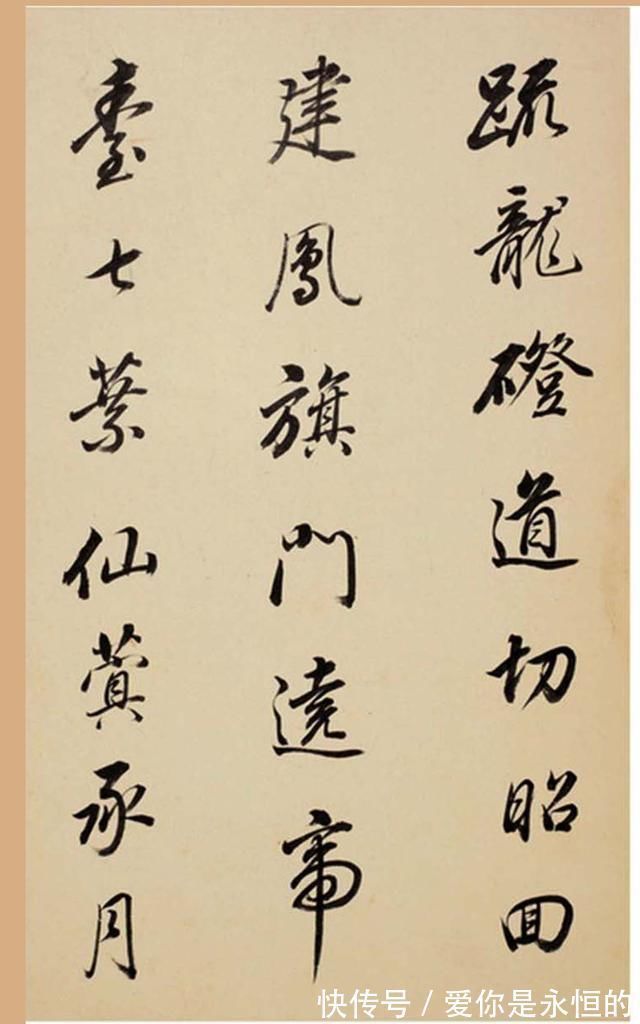 䟽龍磴道切昭回
建鳳旗門遶帝
臺七葉仙蓂承月
快传号 / 爱你是永恒的